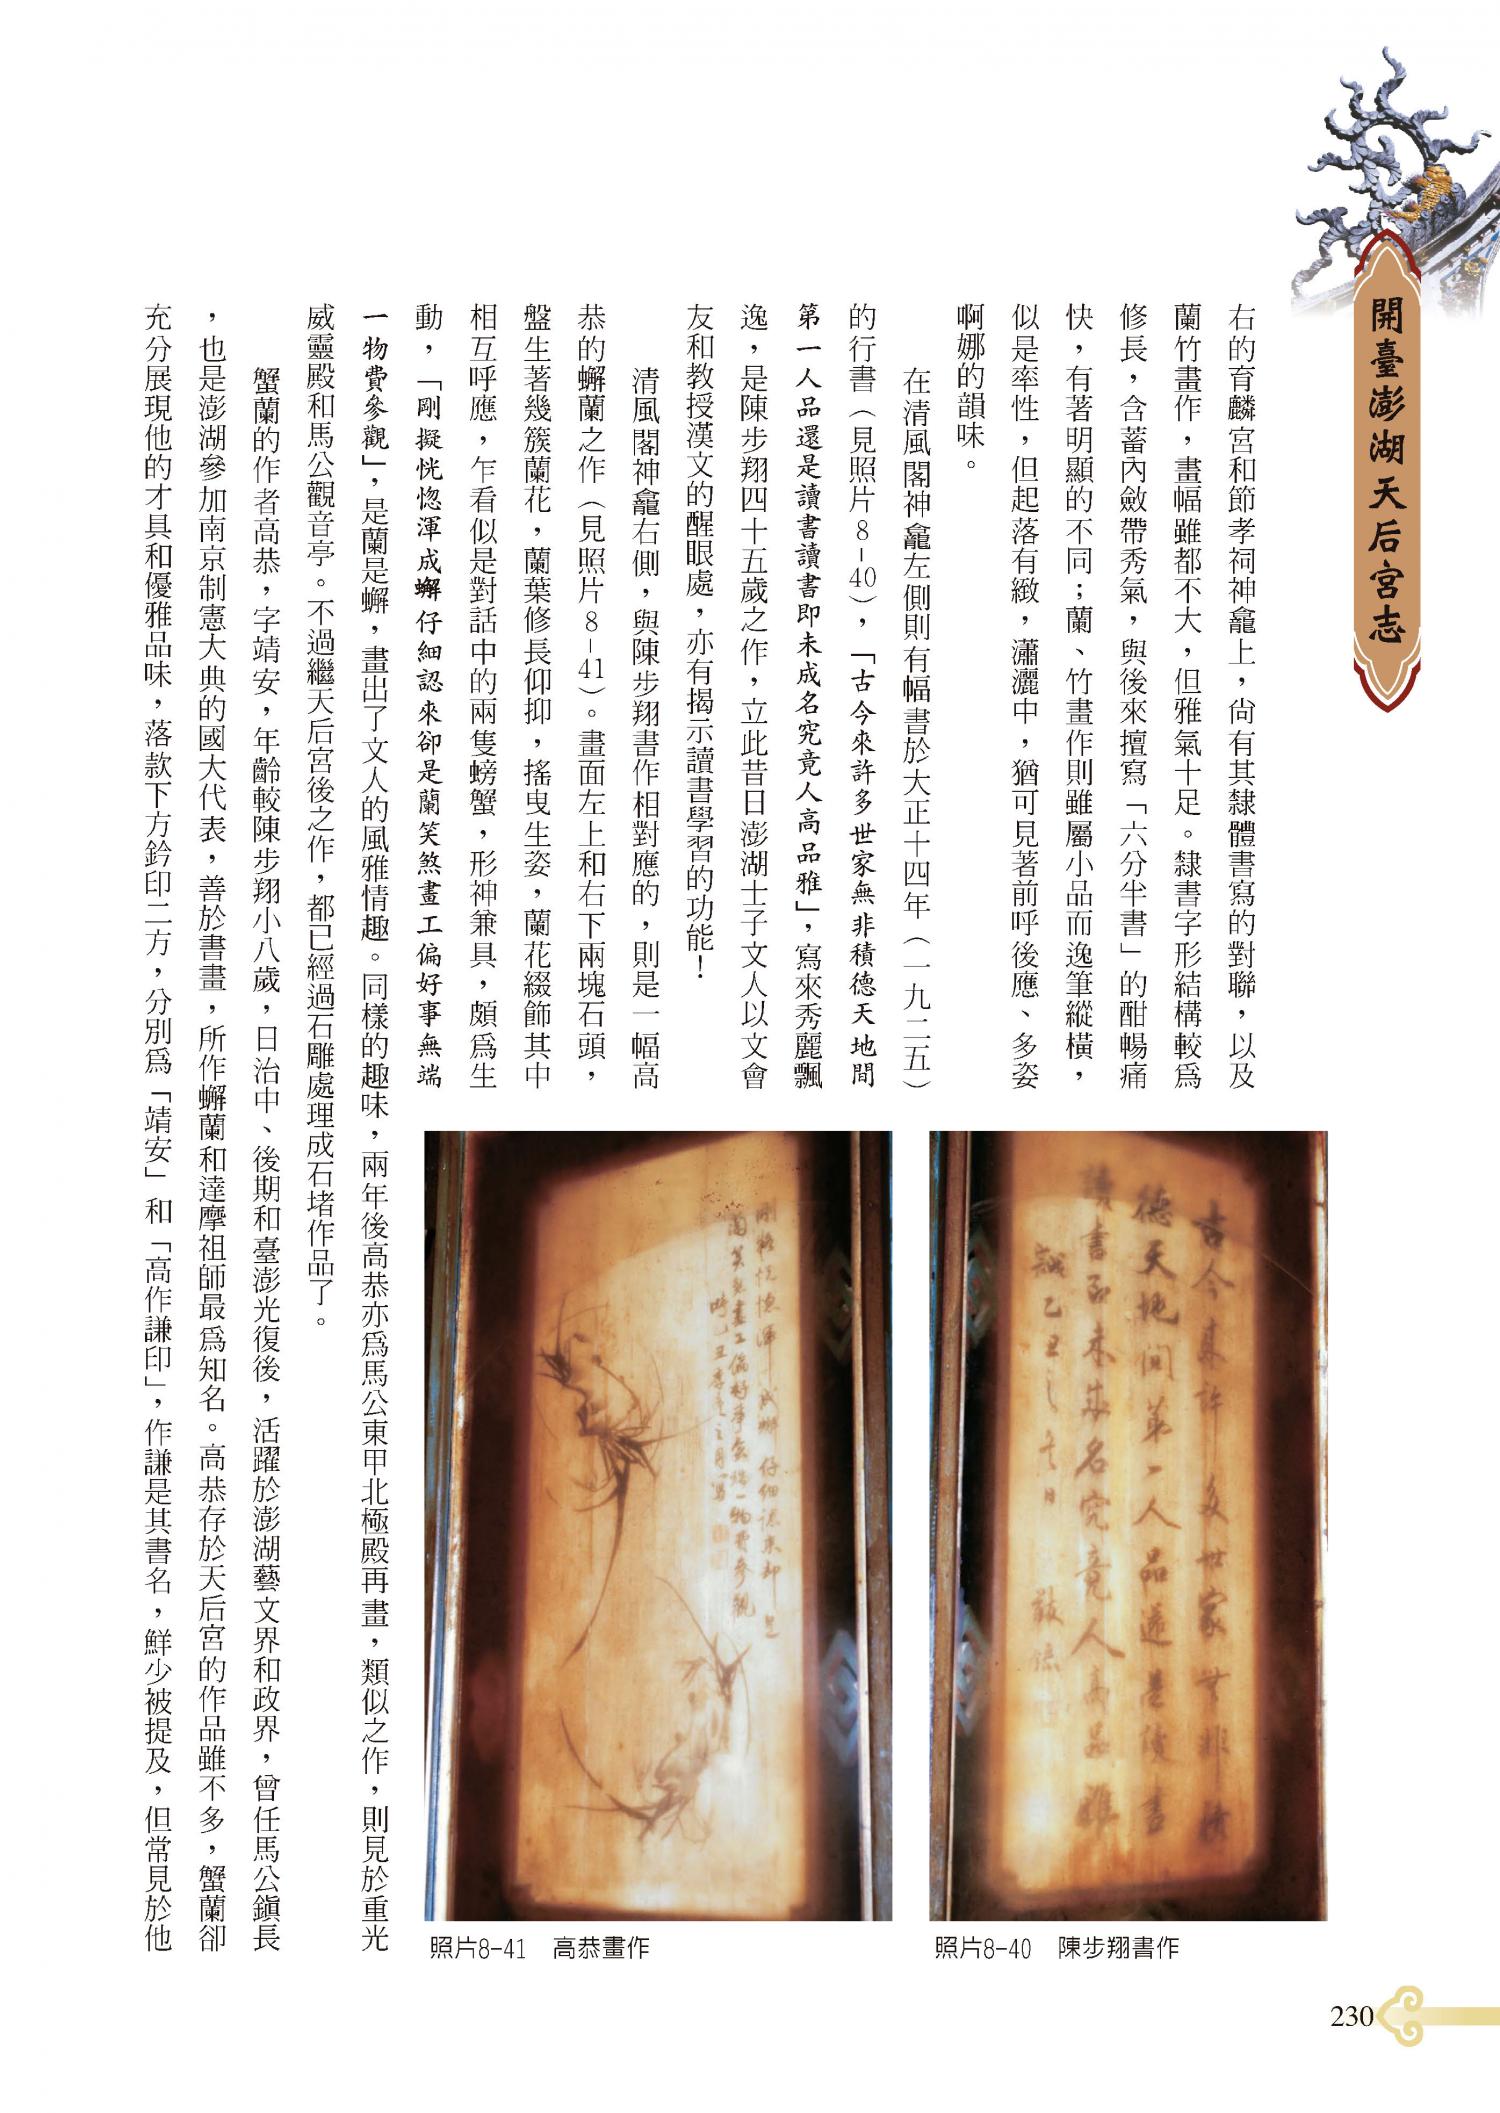 開臺澎湖天后宮志
右的育麟宮和節孝祠神龕上，尚有其隸體書寫的對聯，以及
蘭竹畫作，畫幅雖都不大，但雅氣十足。隸書字形結構較為
修長，含蓄內斂帶秀氣，與後來擅寫「六分半書」的酣暢痛
快，有著明顯的不同；蘭、竹畫作則雖屬小品而逸筆縱橫，
似是率性，但起落有緻，瀟灑中，猶可見著前呼後應、多姿
啊娜的韻味。
在清風閣神龕左側則有幅書於大正十四年（一九二五）
的行書（見照片8-40），「古今來許多世家無非積德天地間
第一人品還是讀書讀書即未成名究竟人高品雅」，寫來秀麗飄
逸，是陳步翔四十五歲之作，立此昔日澎湖士子文人以文會
友和教授漢文的醒眼處，亦有揭示讀書學習的功能！
清風閣神龕右側，與陳步翔書作相對應的，則是一幅高
恭的蠏蘭之作（見照片8-41）。畫面左上和右下兩塊石頭，
盤生著幾簇蘭花，蘭葉修長仰抑，搖曳生姿，蘭花綴飾其中
相互呼應，乍看似是對話中的兩隻螃蟹，形神兼具，頗為生
動，「剛擬恍惚渾成蠏仔細認來卻是蘭笑煞畫工偏好事無端
一物費參觀」，是蘭是蠏，畫出了文人的風雅情趣。同樣的趣味，兩年後高恭亦為馬公東甲北極殿再畫，類似之作，則見於重光
威靈殿和馬公觀音亭。不過繼天后宮後之作，都已經過石雕處理成石堵作品了。
蟹蘭的作者高恭，字靖安，年齡較陳步翔小八歲，日治中、後期和臺澎光復後，活躍於澎湖藝文界和政界，曾任馬公鎮長
，也是澎湖參加南京制憲大典的國大代表，善於書畫，所作蠏蘭和達摩祖師最為知名。高恭存於天后宮的作品雖不多，蟹蘭卻
充分展現他的才具和優雅品味，落款下方鈐印二方，分別為「靖安」和「高作謙印」，作謙是其書名，鮮少被提及，但常見於他
古今來許多世家無非積
德天地間第一人品還是讀書
讀書即未成名究竟人高品雅
剛擬恍惚渾成蠏仔細認來卻是
蘭笑煞畫工偏好事無端一物費參觀
照片8-40 陳步翔書作
照片8-41 高恭畫作
230